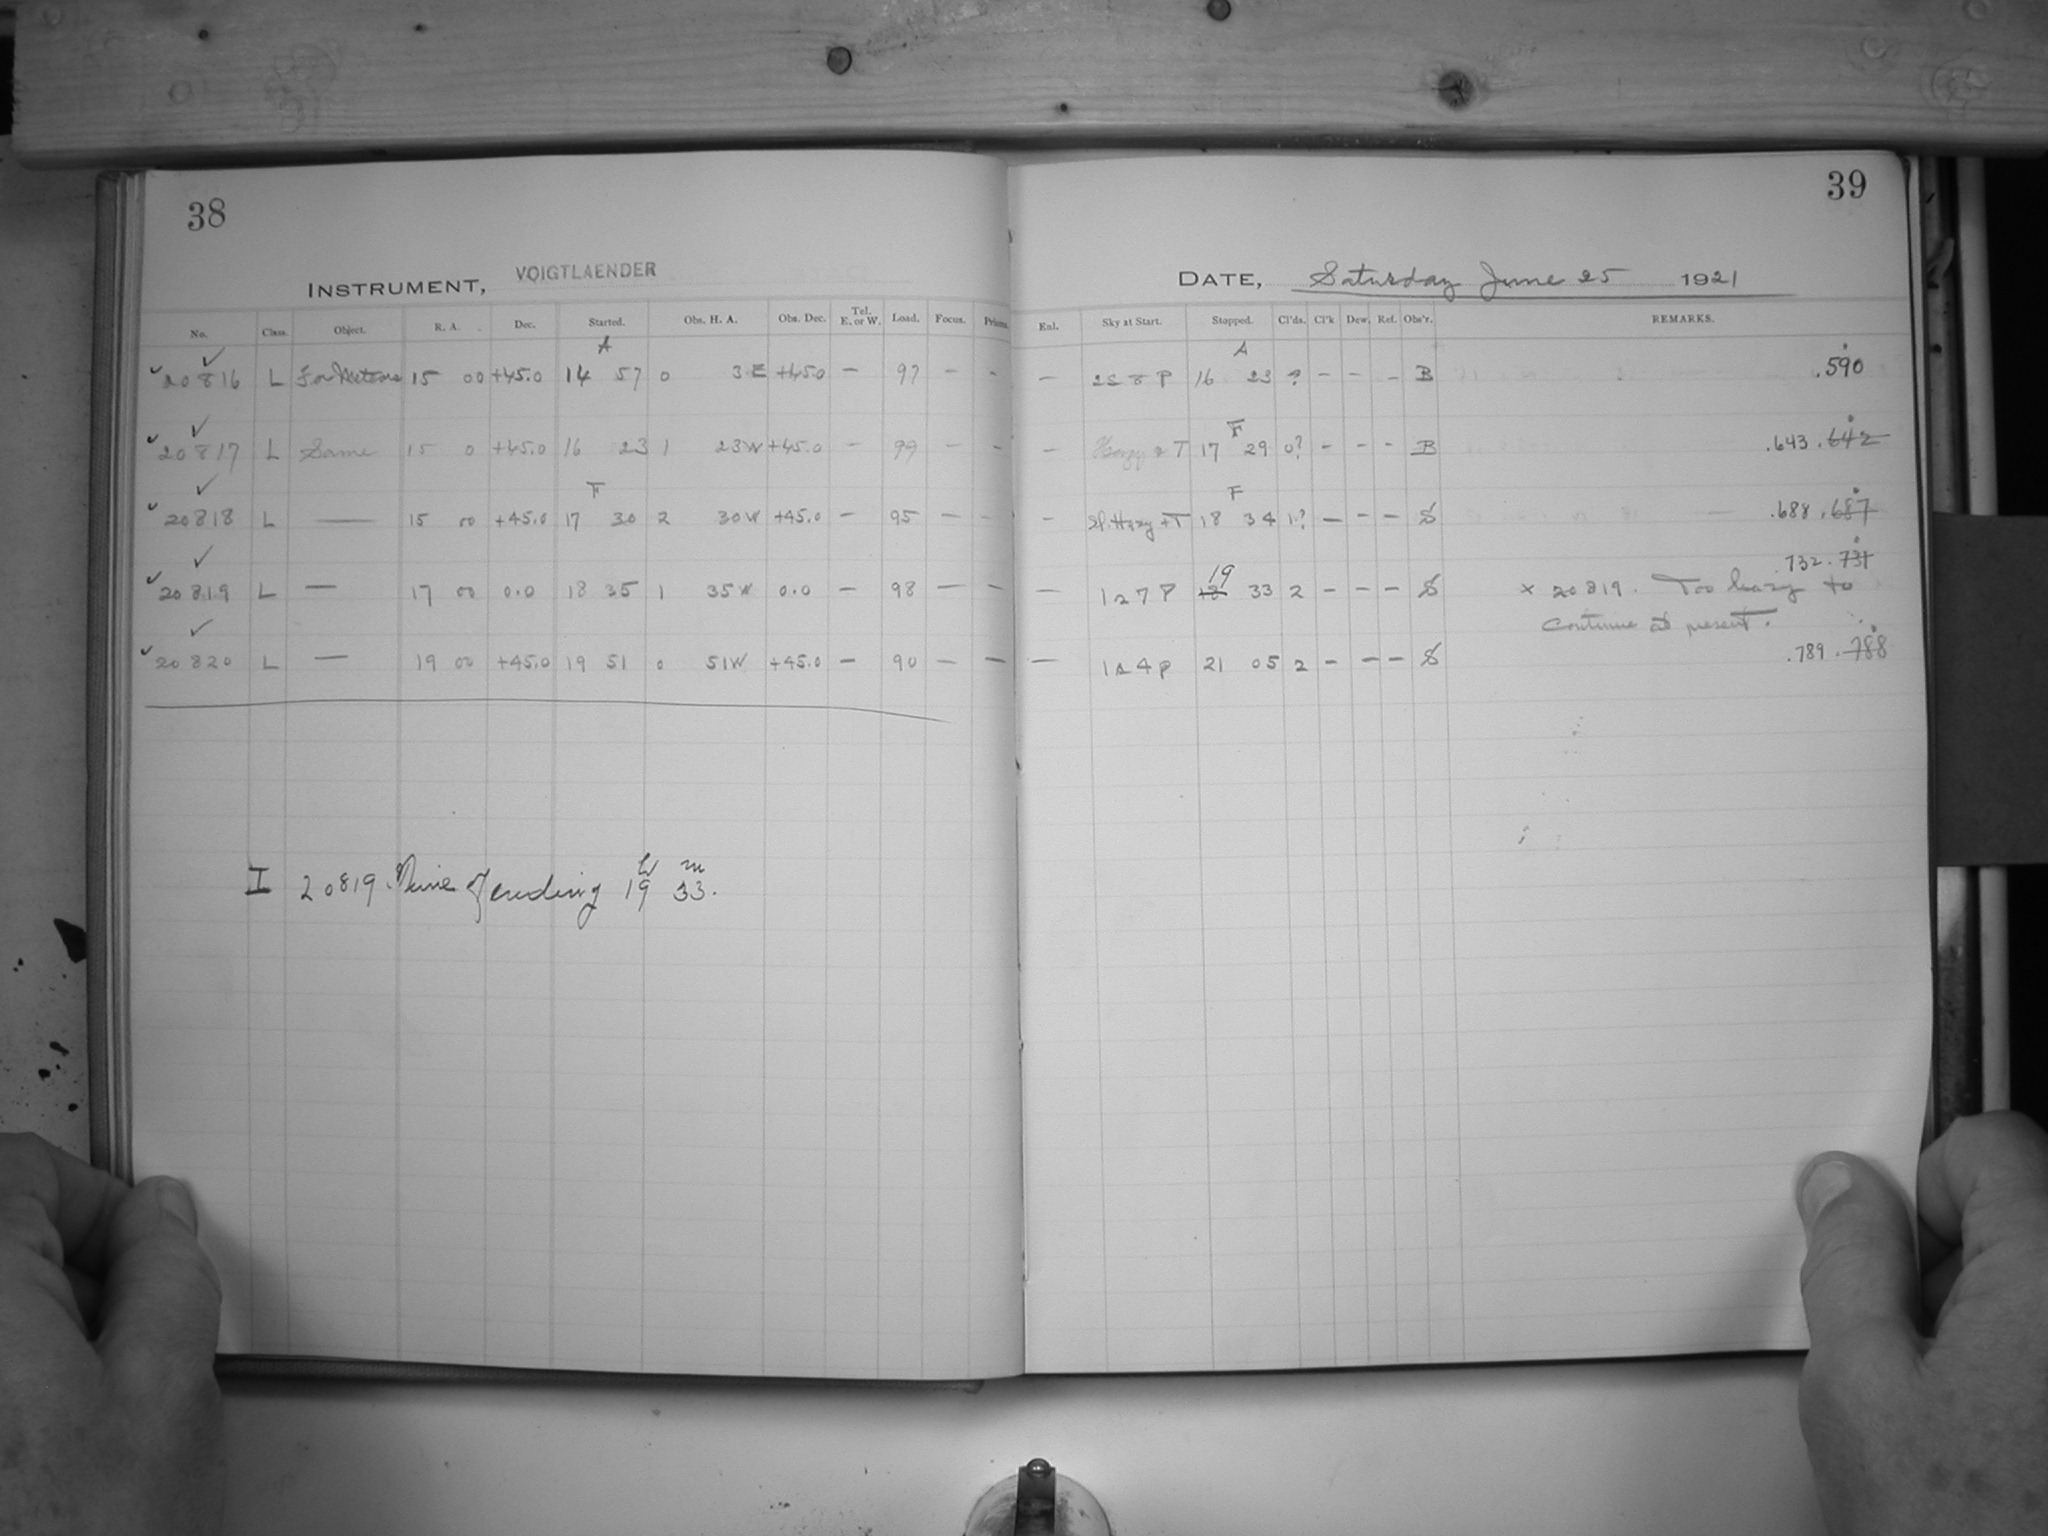 38
INSTRUMENT, VOIGTLAENDER
No. Class. Object. R. A. Dec. Started. Obs. H. A. Obs. Dec. Tel. E. or W. Load. Focus. Prisms.
A
✓ 20816 L For Meteors 15 00 +45.0 14 57 0 3 E +45.0 — 97 — -
✓ 20817 L Same 15 0 +45.0 16 23 1 23 W +45.0 — 99 — —
F
✓ 20818 L — 15 00 +45.0 17 30 2 30 W +45.0 — 95 — —
✓ 20819 L — 17 00 0.0 18 35 1 35 W 0.0 — 98 — —
✓ 20820 L — 19 00 +45.0 19 51 0 51 W +45.0 — 90 — —
I 20819. Time of ending 19 h 33 m.
39
DATE, Saturday June 25 1921
Enl. Sky at Start. Stopped. Cl'ds. Cl'k Dew. Ref. Obs'r. REMARKS.
A
— 16 23 ? — — - B .590
F
— Hazy + T 17 29 0? - - - B .643 .642
F
— Sl. Hazy + T 18 34 1? — - - S .688 .687
19
.732 .731
— 1 a 7 P 18 33 2 - - - S x 20819. Too hazy to
continue at present.
— 1 a 4 P 21 05 2 - - - S .789 .788